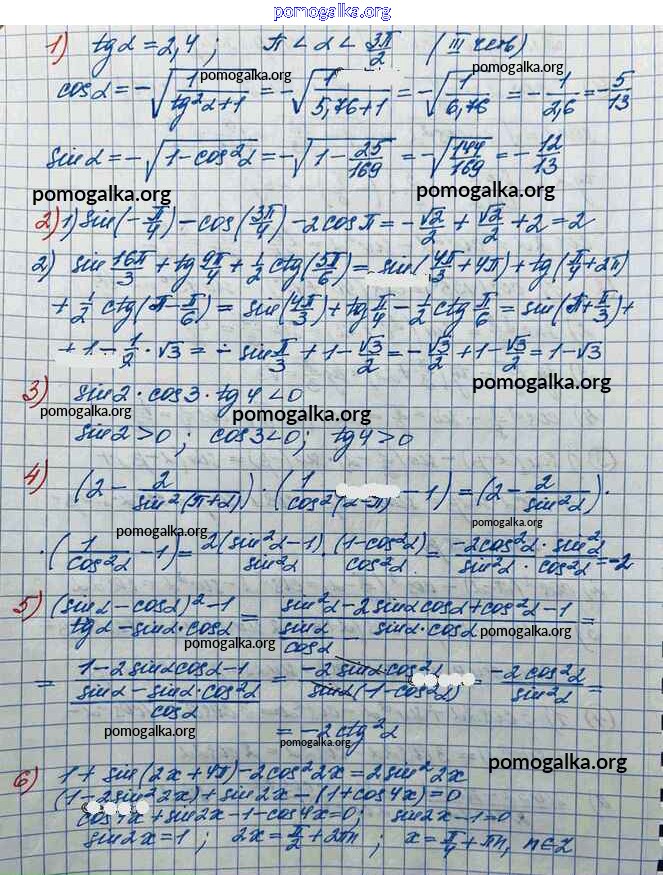 pomogalka.org
1) tgα = 2,4 ; π < α < 3π/2 (III четв)
pomogalka.org
cosα = -√(1/(tg²α+1)) = -√(1/(5,76+1)) = -√(1/6,76) = -1/2,6 = -5/13
sinα = -√(1-cos²α) = -√(1-25/169) = -√(144/169) = -12/13
pomogalka.org pomogalka.org
2) 1) sin(-π/4) - cos(3π/4) - 2cosπ = -√2/2 + √2/2 + 2 = 2
2) sin 16π/3 + tg 9π/4 + 1/2 ctg(5π/6) = sin(4π/3 + 4π) + tg(π/4 + 2π)
+ 1/2 ctg(π - π/6) = sin(4π/3) + tg π/4 - 1/2 ctg π/6 = sin(π + π/3) +
+ 1 - 1/2 · √3 = - sin π/3 + 1 - √3/2 = -√3/2 + 1 - √3/2 = 1 - √3
pomogalka.org
3) sin2 · cos3 · tg4 < 0
pomogalka.org pomogalka.org
sin2 > 0 ; cos3 < 0 ; tg4 > 0
4) (2 - 2/sin²(π+α)) · (1/cos²(α-π) - 1) = (2 - 2/sin²α) ·
pomogalka.org pomogalka.org
· (1/cos²α - 1) = 2(sin²α - 1)/sin²α · (1-cos²α)/cos²α = -2cos²α · sin²α/sin²α · cos²α = -2
5) (sinα - cosα)² - 1/tgα - sinα·cosα = sin²α - 2sinαcosα + cos²α - 1/sinα/cosα - sinα·cosα =
pomogalka.org pomogalka.org
= 1 - 2sinαcosα - 1/sinα - sinα·cos²α/cosα = -2sinαcos²α/sinα(1-cos²α) = -2cos²α/sin²α =
pomogalka.org
= -2ctg²α
pomogalka.org
pomogalka.org
6) 1 + sin(2x + 4π) - 2cos²2x = 2sin²2x
(1 - 2sin²2x) + sin2x - (1 + cos4x) = 0
pomogalka.org
cos4x + sin2x - 1 - cos4x = 0 ; sin2x - 1 = 0
sin2x = 1 ; 2x = π/2 + 2πn ; x = π/4 + πn, n∈Z
pomogalka.org